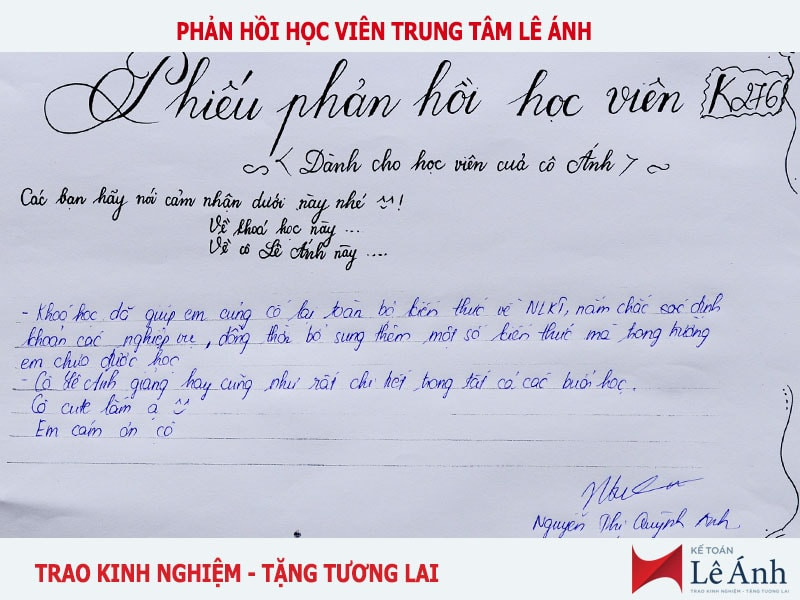 PHẢN HỒI HỌC VIÊN TRUNG TÂM LÊ ÁNH
Phiếu phản hồi học viên K276
< Dành cho học viên cuả cô Ánh >
Các bạn hãy nói cảm nhận dưới này nhé ^^!
Về khoá học này ...
Về cô Lê Ánh này ....
- Khoá học đã giúp em củng cố lại toàn bộ kiến thức về NLKT, nắm chắc các định
khoản các nghiệp vụ, đồng thời bổ sung thêm một số kiến thức mà trong trường
em chưa được học
- Cô Lê Ánh giảng hay cũng như rất chi tiết trong tất cả các buổi học.
Cô cute lắm ạ ^^
Em cảm ơn cô
Nguyễn Thị Quỳnh Anh
TRAO KINH NGHIỆM - TẶNG TƯƠNG LAI
KẾ TOÁN
Lê Ánh
TRAO KINH NGHIỆM - TẶNG TƯƠNG LAI